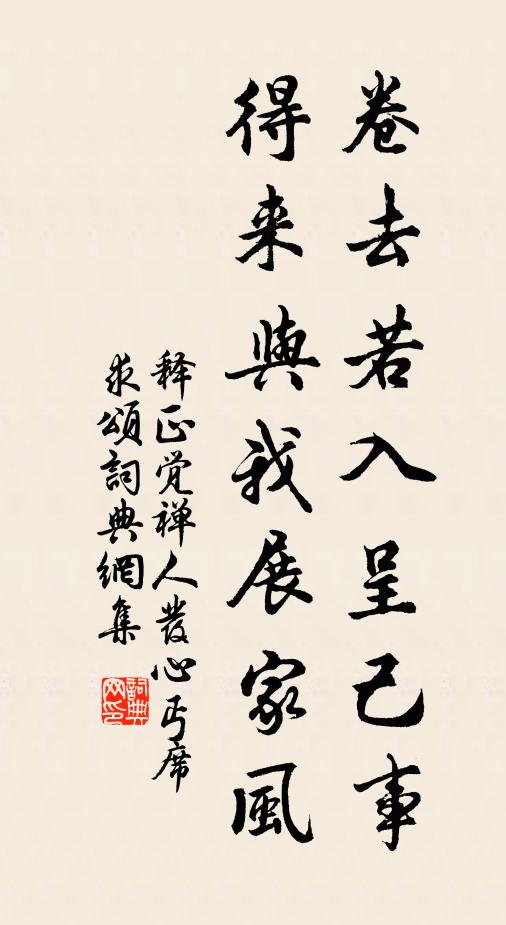 卷去若入呈己事
得来與我展家風
释正觉禅人發心丐席
求頌詞典網集
詞典
网印